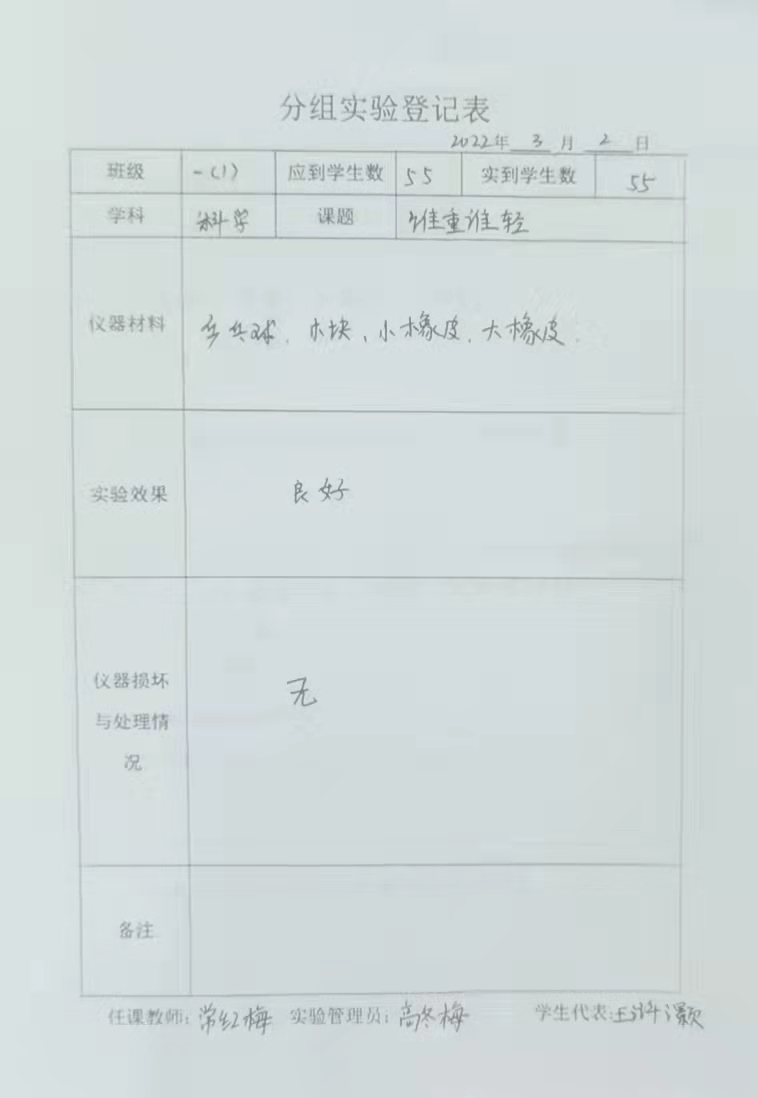 分组实验登记表
2022年 3 月 2 日
班级 一(1) 应到学生数 55 实到学生数 55
学科 科学 课题 谁重谁轻
仪器材料 乒乓球、木块、小橡皮、大橡皮.
实验效果 良好
仪器损坏
与处理情
况
无
备注
任课教师: 常红梅 实验管理员: 高冬梅 学生代表: 王